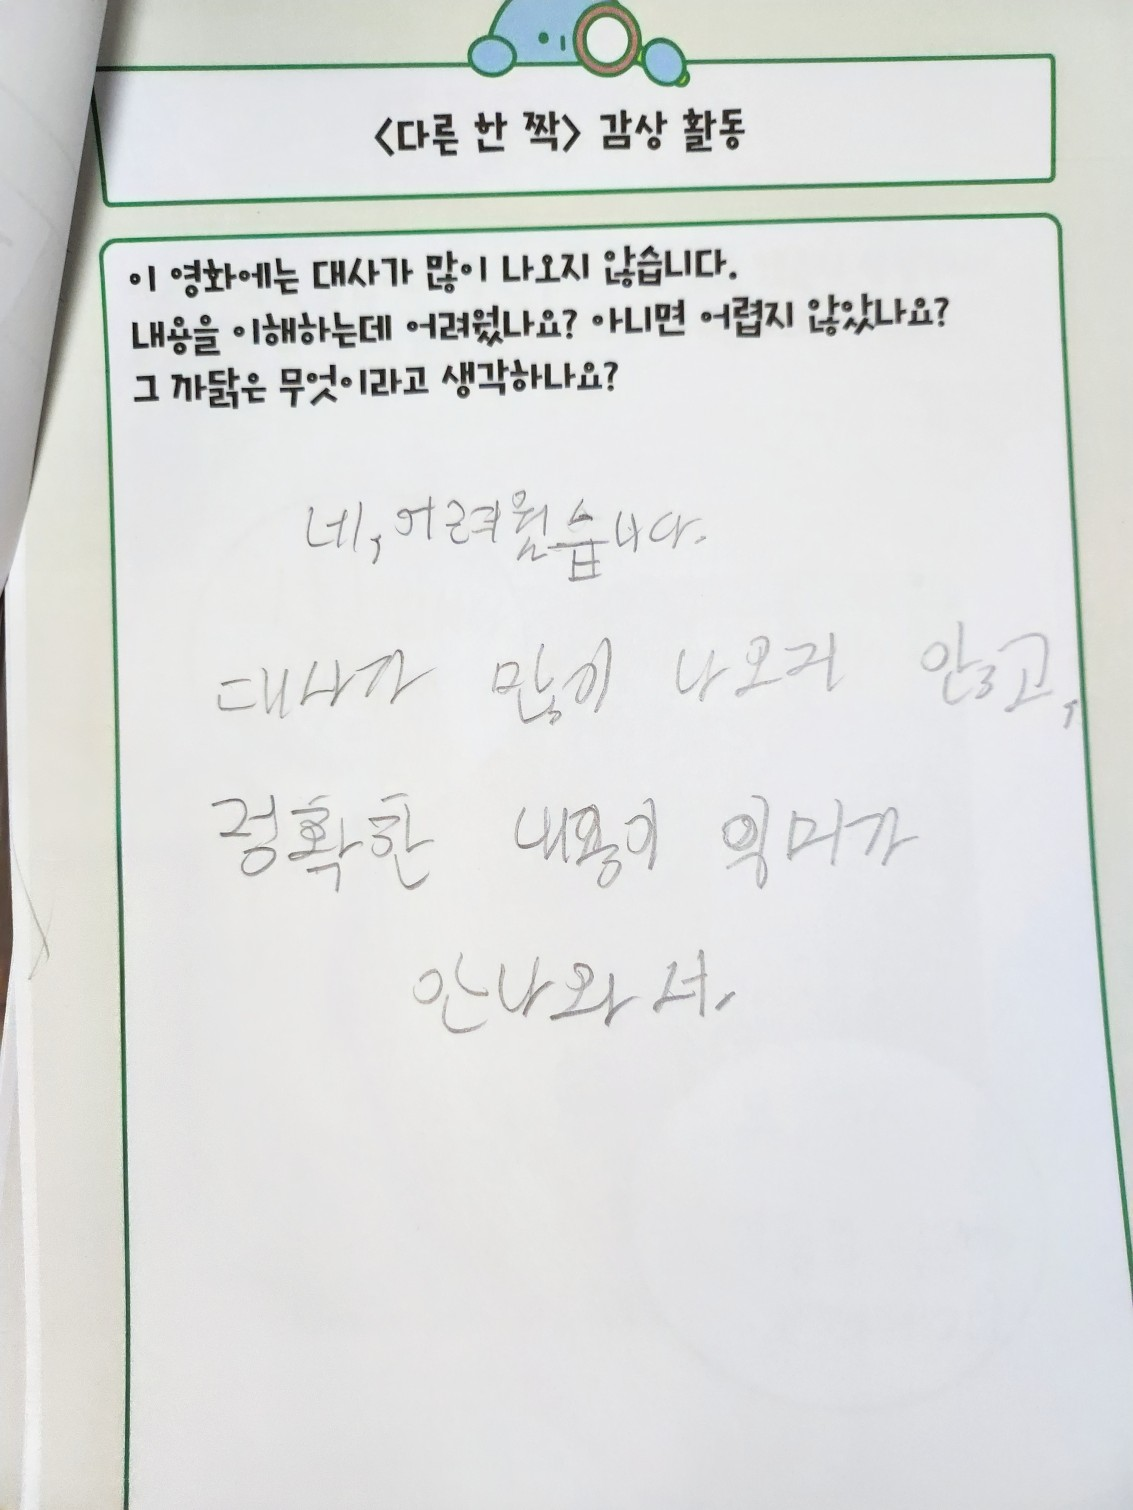 <다른 한 짝> 감상 활동
이 영화에는 대사가 많이 나오지 않습니다.
내용을 이해하는데 어려웠나요? 아니면 어렵지 않았나요?
그 까닭은 무엇이라고 생각하나요?
네, 어려웠습니다.
대사가 많이 나오지 않고,
정확한 내용이
안나와서.